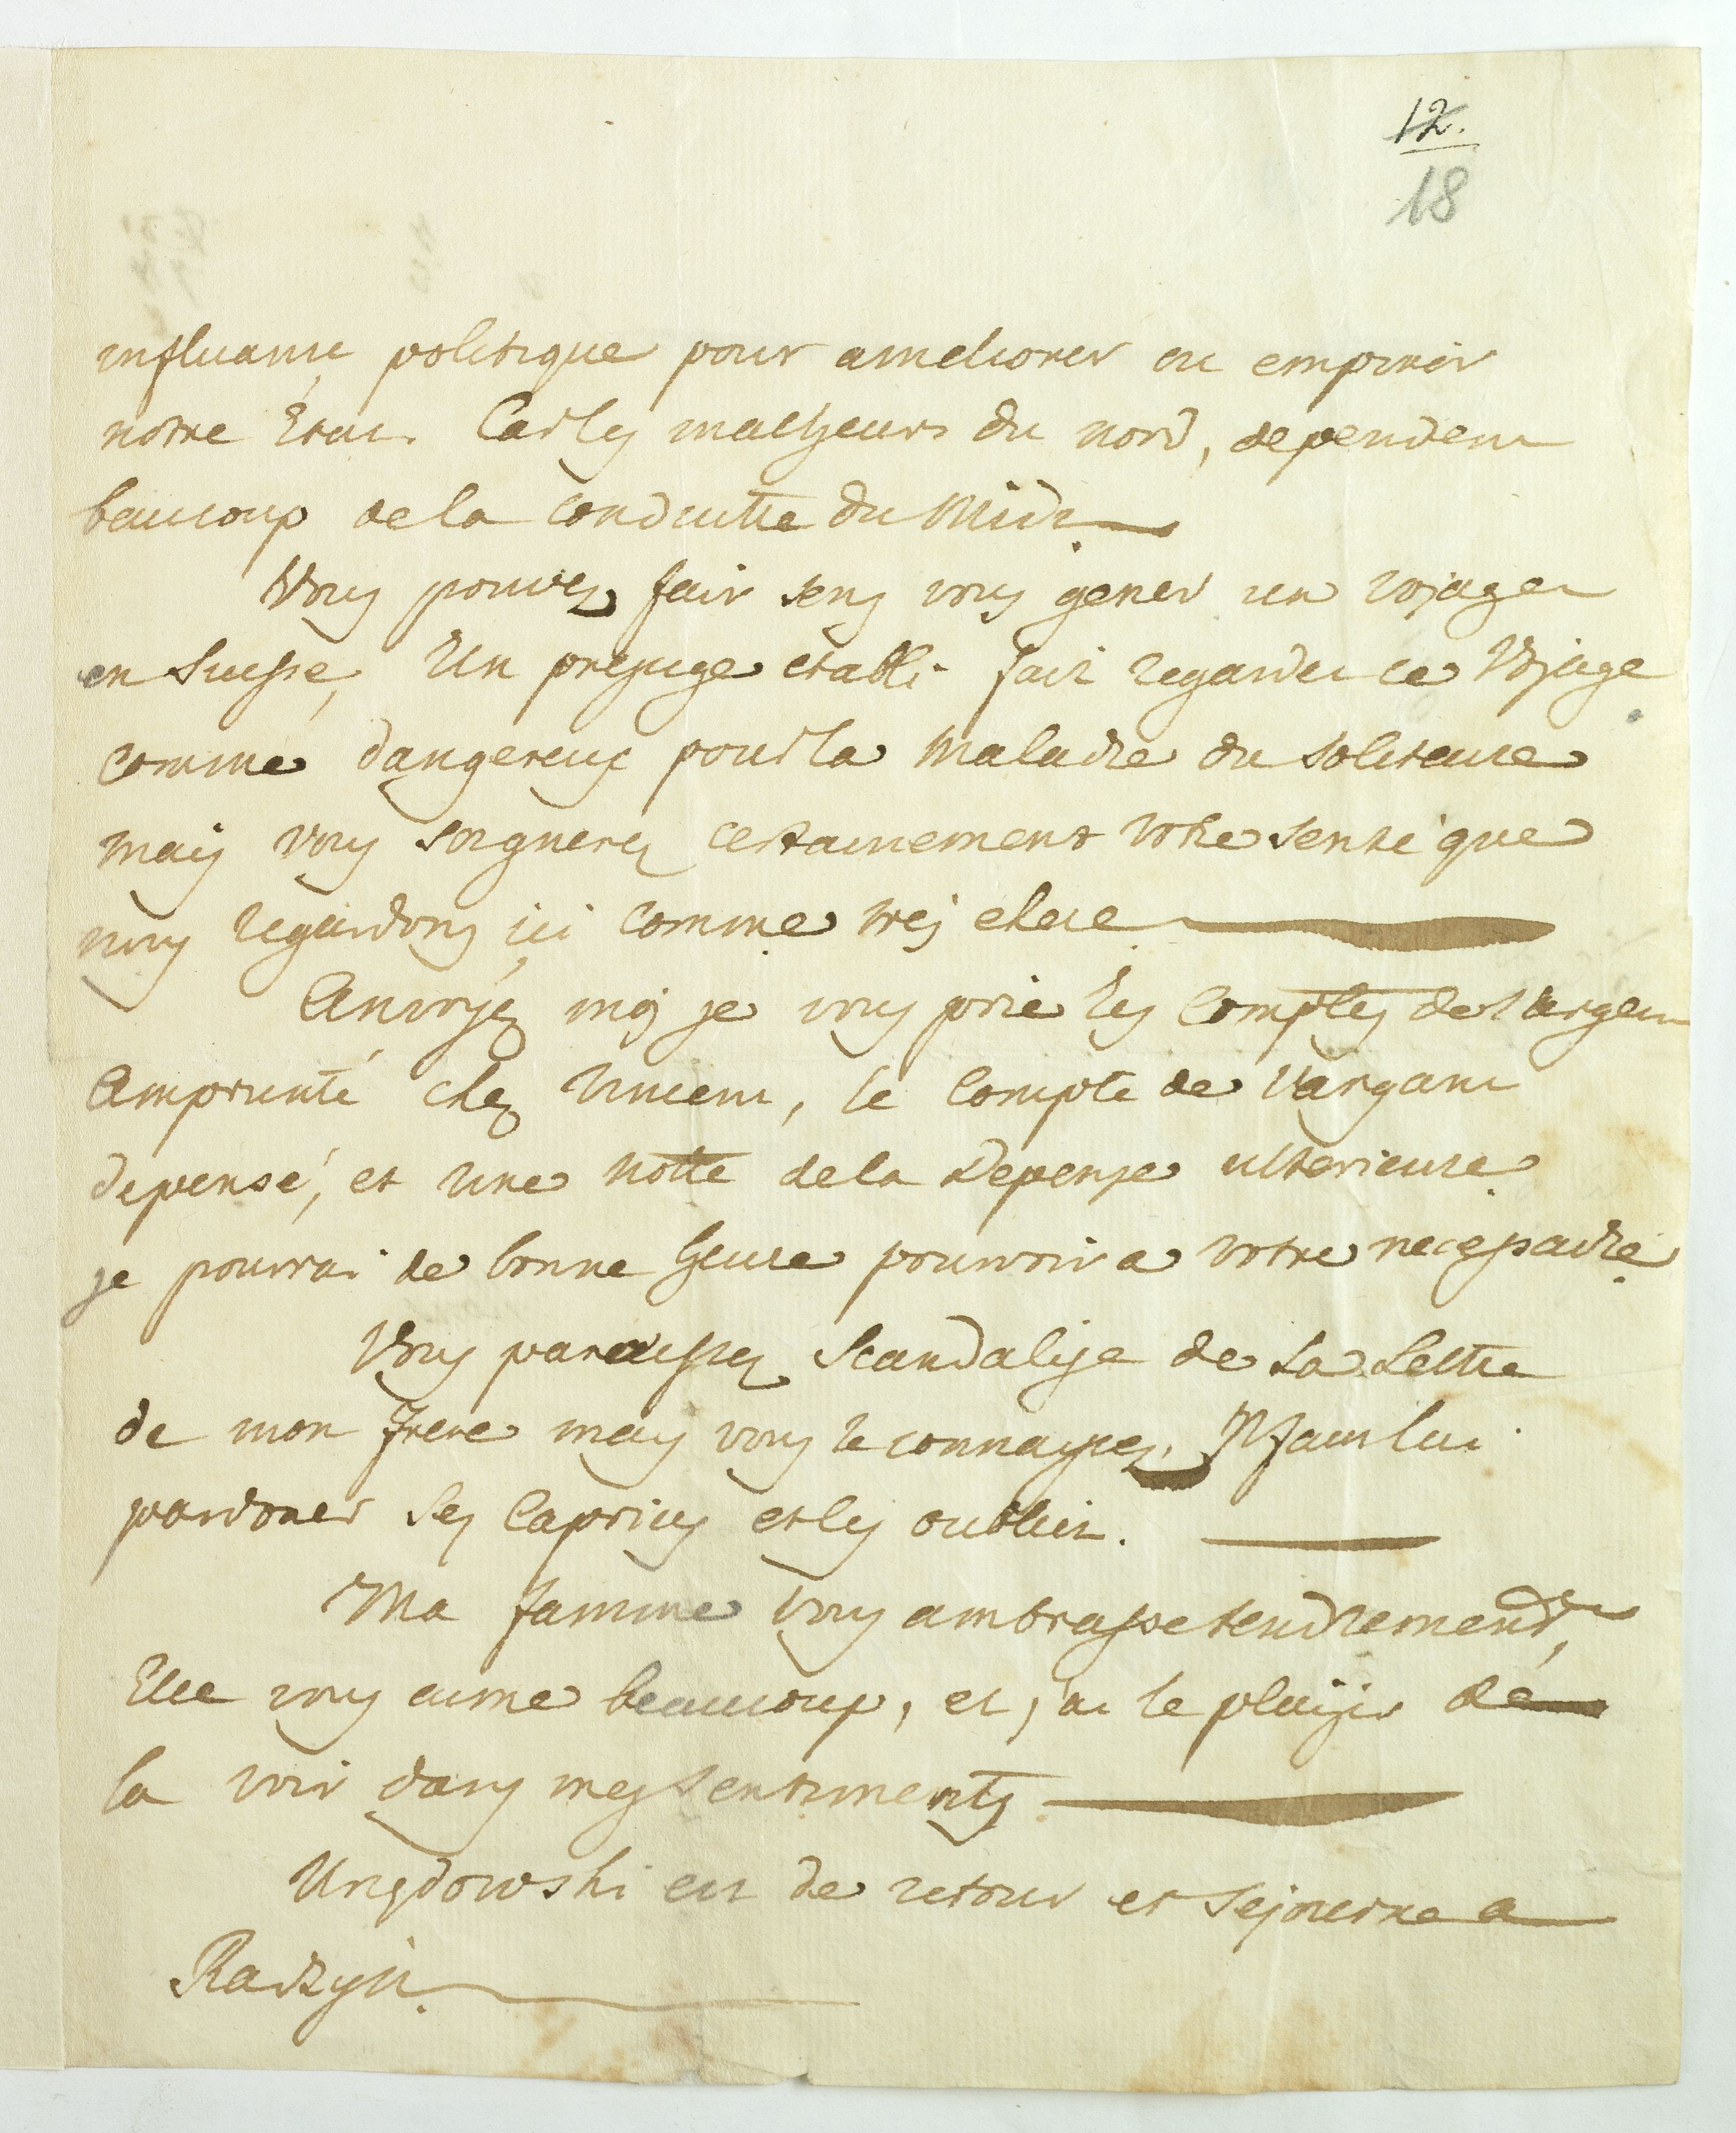 12.
18
influance politique pour ameliorer ou empirer
notre Etat. Car les malheurs du nord, dependent
beaucoup de la conduitte du Midi.
Vous pouvez fair sens vous gener un vojage
en Suisse, Un prejuge etabli fait regarder ce Vojage
comme dangereux pour la maladie du solitaire
mais vous soignerez certainement votre senté que
nous regardons ici comme tres chere
Anvojez moj je vous prie les comptes de l'argent
amprunté chez Vincent, le compte de l'argant
depensé, et une notte de la depense ulterieure.
je pourrai de bonne heure pourvoir a votre necessaire.
Vous paraissez scandalise de la Lettre
de mon frere mais vous le connaissez. Il faut lui
pardoner ses caprices et les oublier.
Ma famme vous ambrasse tendrement,
Elle vous aime beaucoup, et j'ai le plaisir de
la voir dans mes sentiments.
Unzdowski est de retour et sejourne a
Radzyń.